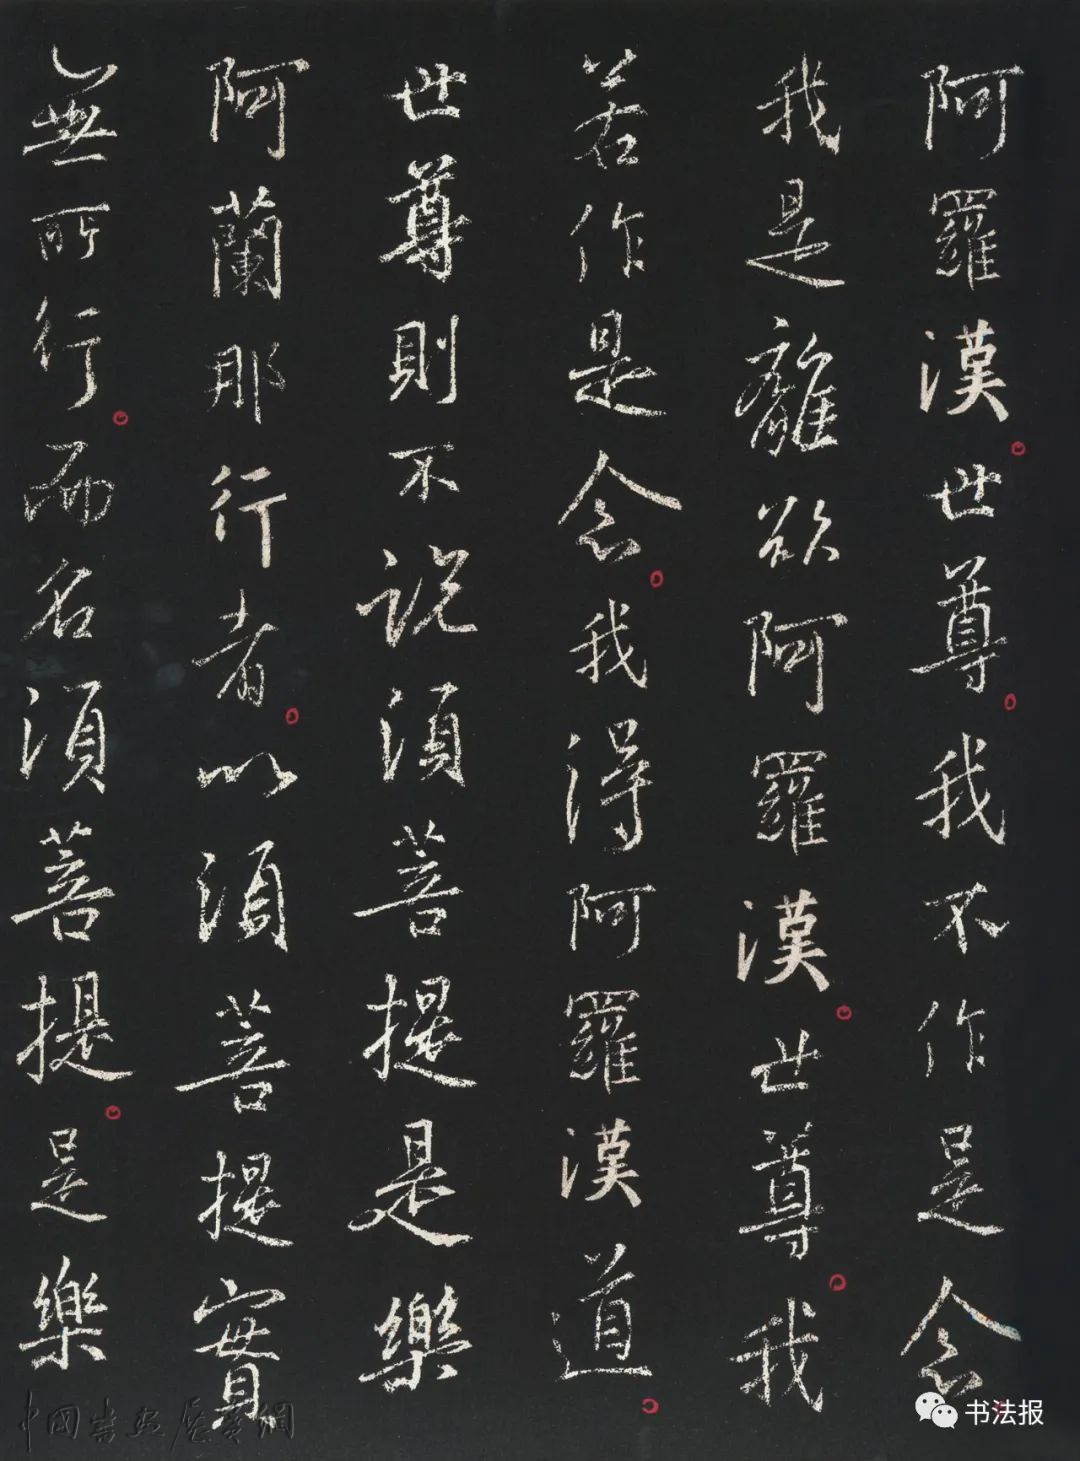 阿羅漢世尊我不作是念
我是離欲阿羅漢世尊我
若作是念我得阿羅漢道
世尊則不說須菩提是樂
阿蘭那行者以須菩提實
無所行而名須菩提是樂
书法报